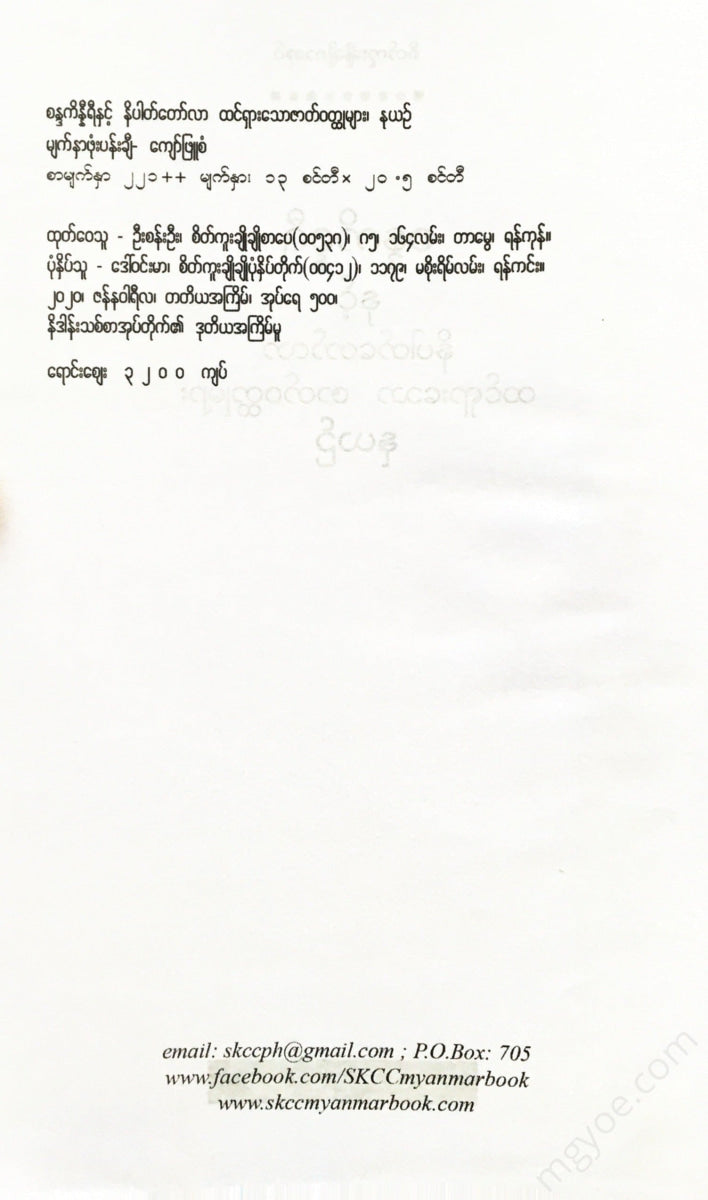 စန္ဒကိန္နရီနှင့် နိပါတ်တော်လာ ထင်ရှားသောဇာတ်ဝတ္ထုများ၊ နယဉ်
မျက်နှာဖုံးပန်းချီ- ကျော်ဖြူစံ
စာမျက်နှာ ၂၂၁++ မျက်နှာ၊ ၁၃ စင်တီ× ၂၀ .၅ စင်တီ
ထုတ်ဝေသူ - ဦးစန်းဦး၊ စိတ်ကူးချိုချိုစာပေ(၀၀၅၃၈)၊ ၈၅၊ ၁၆၄လမ်း၊ တာမွေ၊ ရန်ကုန်။
ပုံနှိပ်သူ - ဒေါ်ဝင်းမာ၊ စိတ်ကူးချိုချိုပုံနှိပ်တိုက်(၀၀၄၁၂)၊ ၁၁၇၉၊ မစိုးရိမ်လမ်း၊ ရန်ကင်း။
၂၀၂၀၊ ဇန်နဝါရီလ၊ တတိယအကြိမ်၊ အုပ်ရေ ၅၀၀၊
နှိဒါန်းသစ်စာအုပ်တိုက်၏ ဒုတိယအကြိမ်မူ
ရောင်းဈေး ၃ ၂ ၀ ၀ ကျပ်
email: skccph@gmail.com ; P.O.Box: 705
www.facebook.com/SKCCmyanmarbook
www.skccmyanmarbook.com
mgyoe.com